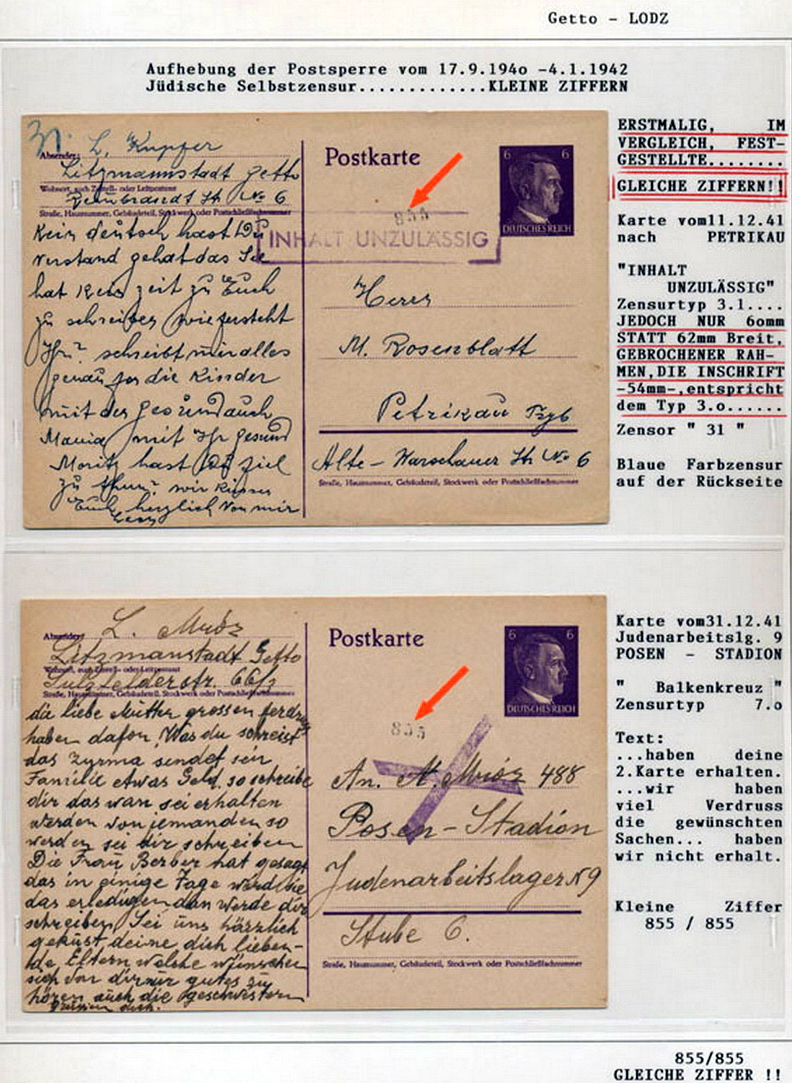 Getto - LODZ
Aufhebung der Postsperre vom 17.9.194o -4.1.1942
Jüdische Selbstzensur.............KLEINE ZIFFERN
31
Absender:
L. Kupfer
Litzmannstadt Getto
Wohnort, auch Zustell- oder Leitpostamt
Rembrandt Str No 6
Straße, Hausnummer, Gebäudeteil, Stockwerk oder Postschließfachnummer
Kein deutsch hast Du
verstand gehat das Sie
hat kein zeit zu Euch
zu schreiben wie fersteht
Ihr? schreibt mir alles
genau for die Kinder
mit der gesund auch
Mania mit Ihr gesund
Moritz hast ziel
zu thun? wir küssen
Euch herzlich von mir
Postkarte
6 6
DEUTSCHES REICH
855
INHALT UNZULÄSSIG
Herrn
M. Rosenblatt
Petrikau Tryb
Alte - Warschauer Str No 6
Straße, Hausnummer, Gebäudeteil, Stockwerk oder Postschließfachnummer
ERSTMALIG, IM
VERGLEICH, FEST-
GESTELLTE........
GLEICHE ZIFFERN!!
Karte vom11.12.41
nach PETRIKAU
"INHALT
UNZULÄSSIG"
Zensurtyp 3.1....
JEDOCH NUR 6omm
STATT 62mm Breit,
GEBROCHENER RAH-
MEN,DIE INSCHRIFT
-54mm-,entspricht
dem Typ 3.o......
Zensor " 31 "
Blaue Farbzensur
auf der Rückseite
Absender:
L. Mróz
Litzmanstadt Getto
Wohnort, auch Zustell- oder Leitpostamt
Sulzfelderstr. 66/2
Straße, Hausnummer, Gebäudeteil, Stockwerk oder Postschließfachnummer
die liebe Mutter grossen ferdruss
haben dafon, Was du schreist
das Zyrma sendet sein
Familie etwas Geld, so schreibe
dir das wan sei erhalten
werden von jemanden so
werden sei dir schreiben
Die Frau Berber hat gesagt
das in einige Tage werd sie
das erledigen dan werde dir
schreiben Sei uns härzlich
geküst deine dich lieben-
de Eltern welche wünschen
sich von dir nur gutes zu
hören auch die geschwistern
grüssen dich.
Postkarte
6 6
DEUTSCHES REICH
855
An. N. Mróz 488
Posen - Stadion
Judenarbeitslager N9
Stube 6.
Straße, Hausnummer, Gebäudeteil, Stockwerk oder Postschließfachnummer
Karte vom31.12.41
Judenarbeitslg. 9
POSEN - STADION
" Balkenkreuz "
Zensurtyp 7.o
Text:
...haben deine
2.Karte erhalten.
...wir haben
viel Verdruss
die gewünschten
Sachen... haben
wir nicht erhalt.
Kleine Ziffer
855 / 855
855/855
GLEICHE ZIFFER !!